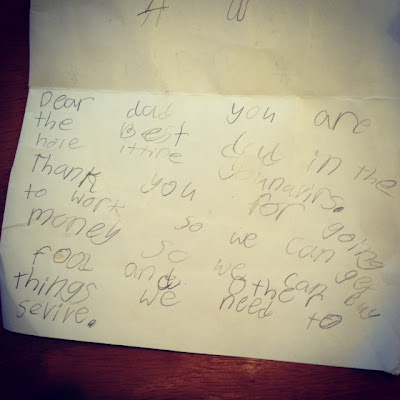 A W
Dear dad you are
the Best dad in the
hole ittire younavirs.
Thank you for going
to work so we can get
money so we can Buy
food and other
things we need to
sevire.